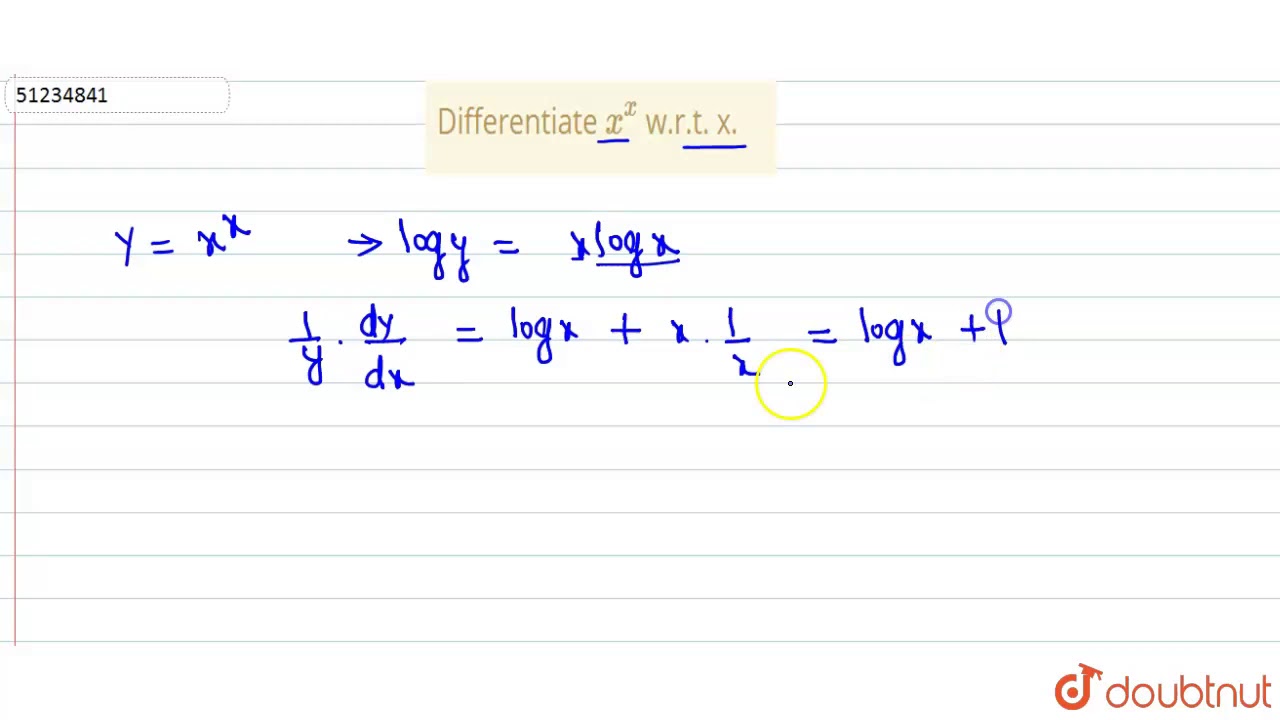 51234841
Differentiate x^x w.r.t. x.
y = x^x → log y = x log x
1/y · dy/dx = log x + x · 1/x = log x + 1
doubtnut